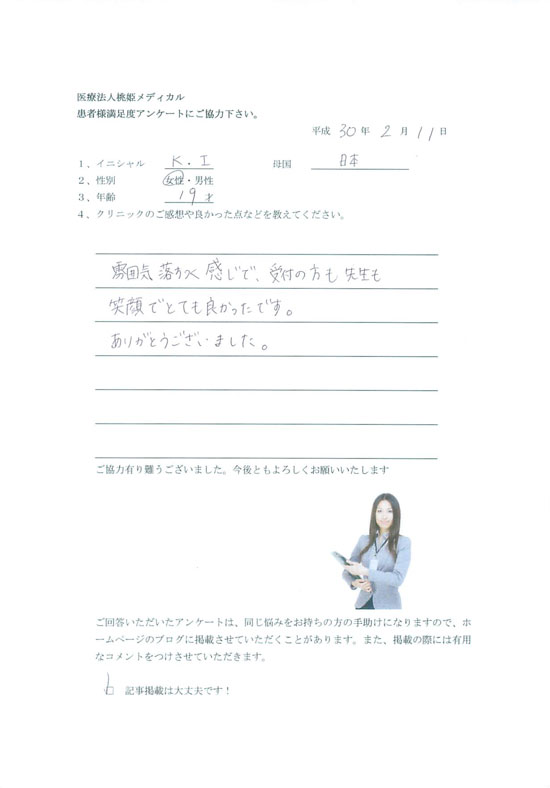 医療法人桃姫メディカル
患者様満足度アンケートにご協力下さい。
平成 30 年 2 月 11 日
1、イニシャル K.I 母国 日本
2、性別 女性・男性
3、年齢 19才
4、クリニックのご感想や良かった点などを教えてください。
雰囲気 落ちつく 感じで、受付の方も 先生も
笑顔でとても良かったです。
ありがとうございました。
ご協力有り難うございました。今後ともよろしくお願いいたします
ご回答いただいたアンケートは、同じ悩みをお持ちの方の手助けになりますので、ホ
ームページのブログに掲載させていただくことがあります。また、掲載の際には有用
なコメントをつけさせていただきます。
□ 記事掲載は大丈夫です！